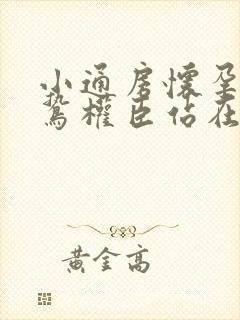 小通房懷孕
鷙權臣佔在
黃金高